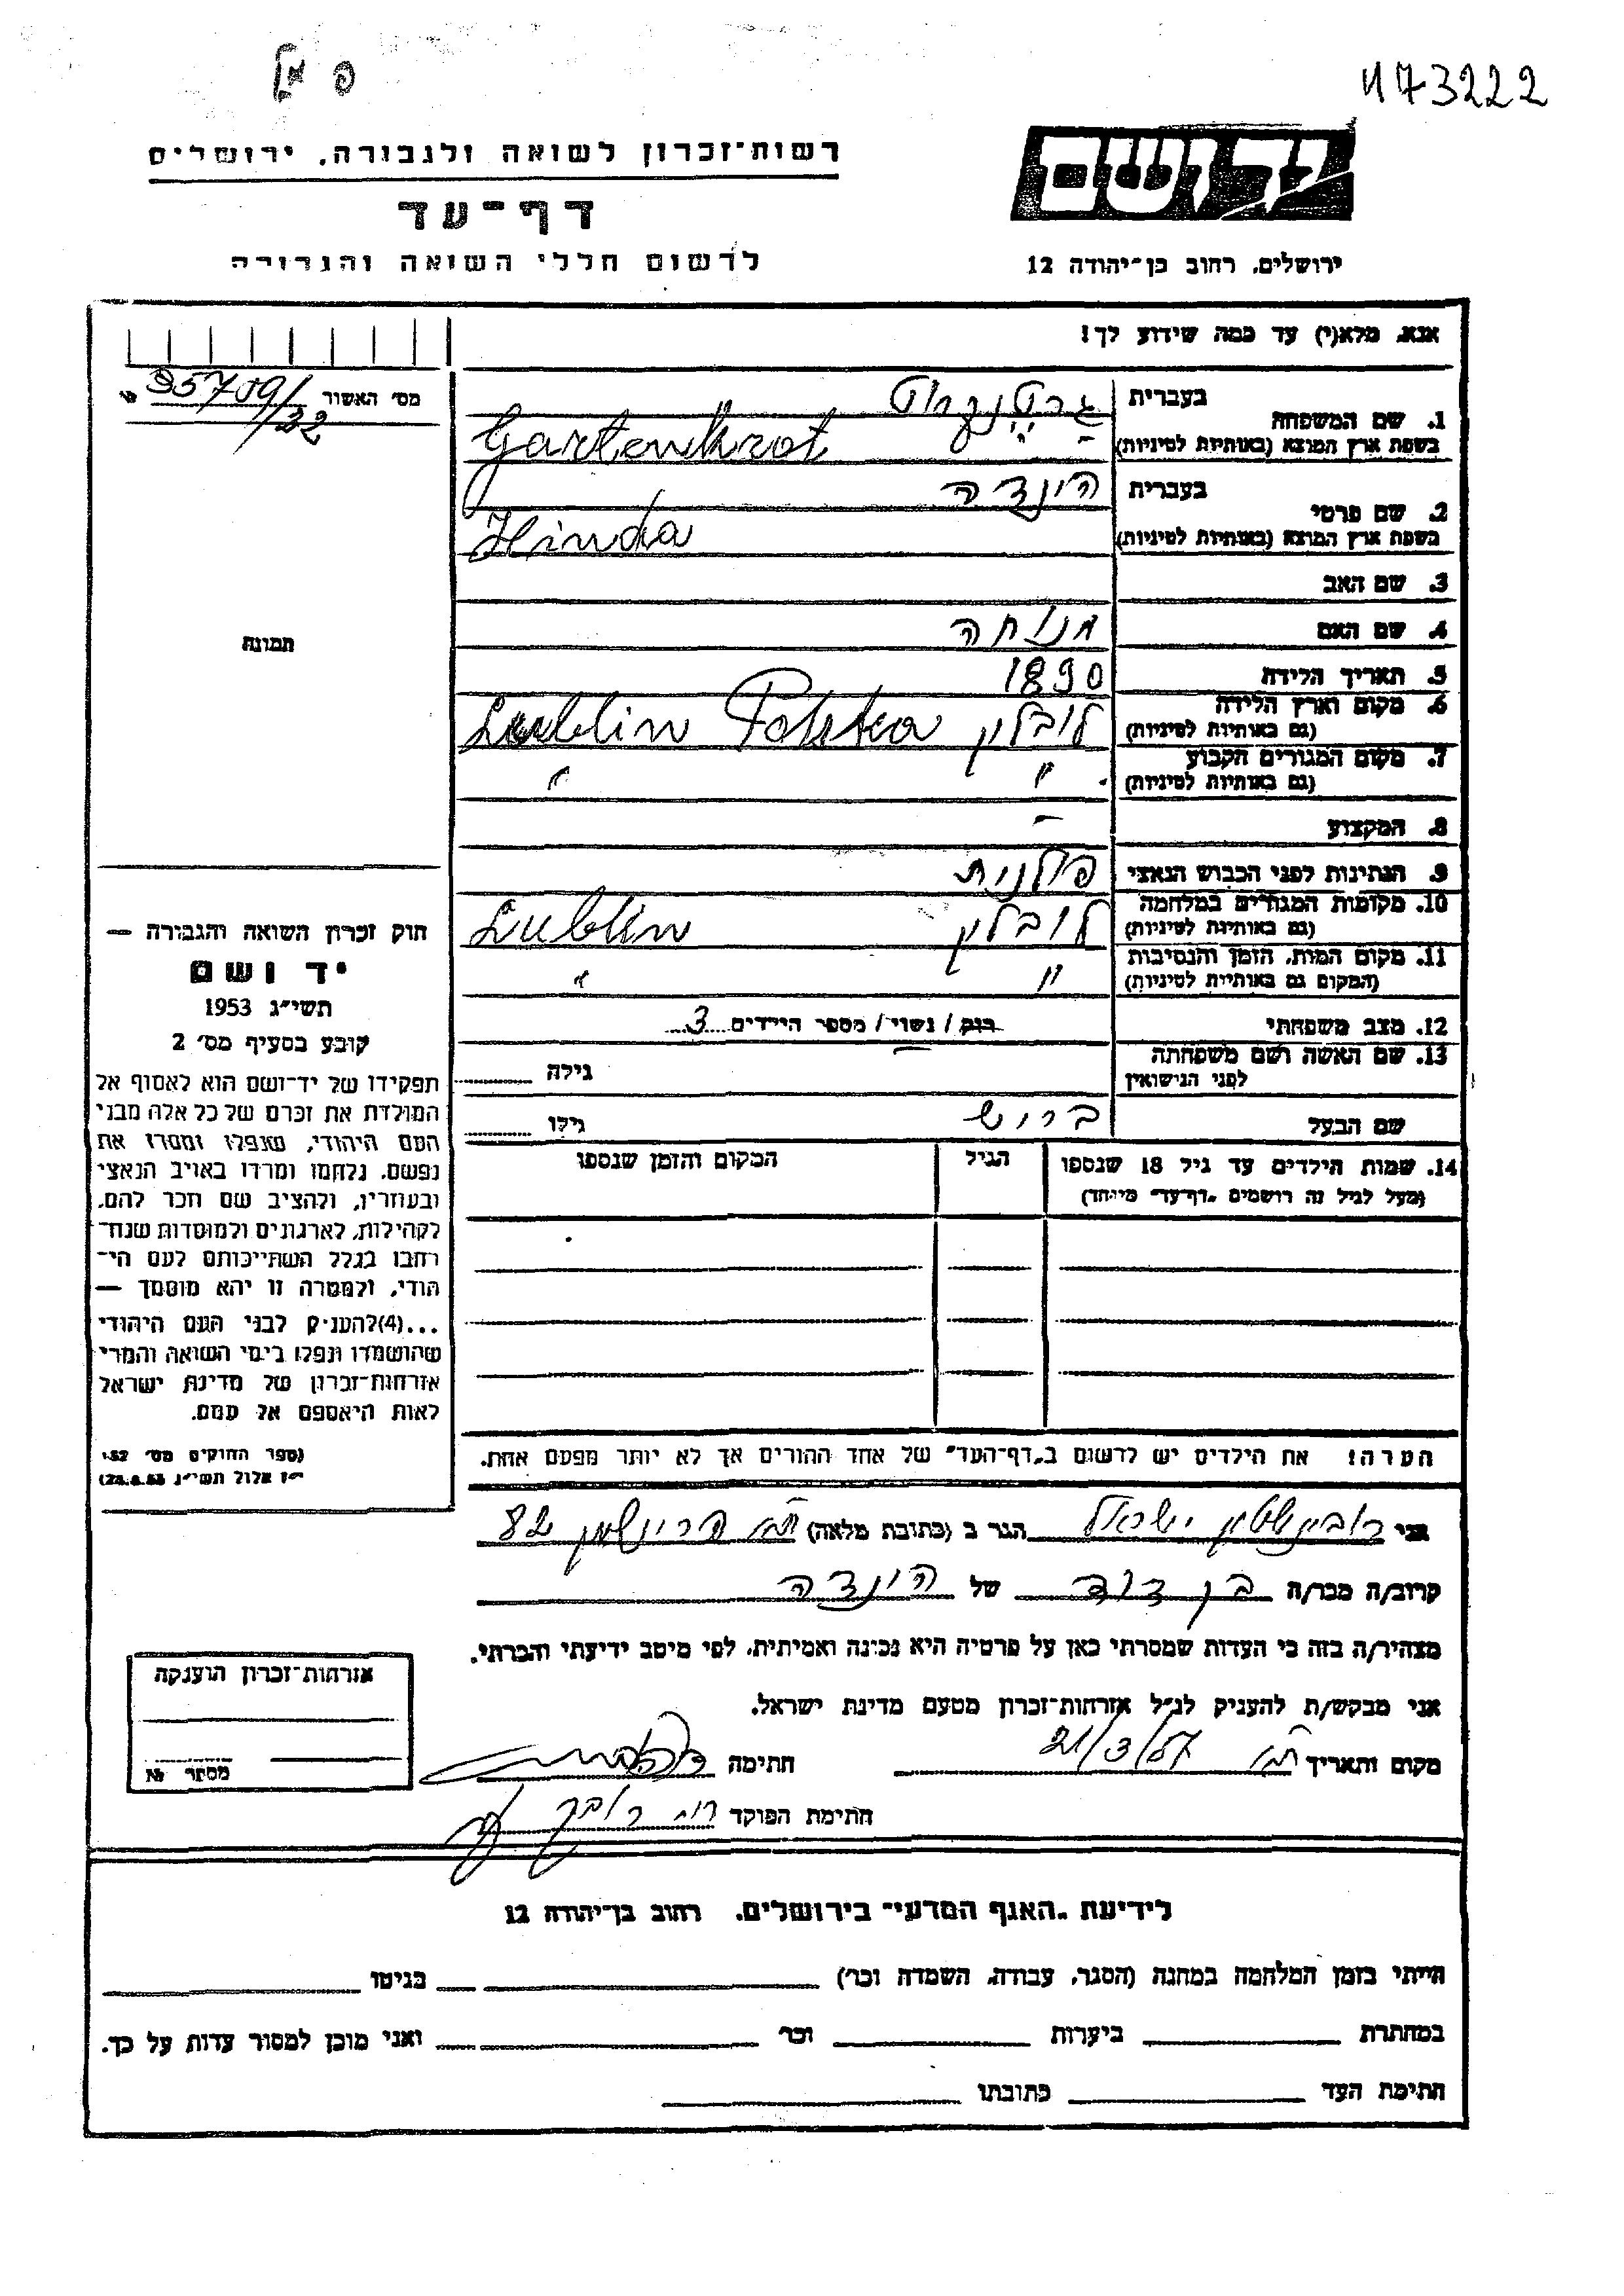 173222
רשות־זכרון לשואה ולגבורה, ירושלים
יד ושם
דף־עד
לרשום חללי השואה והגבורה
ירושלים, רחוב בן־יהודה 12
אנא, מלא(י) עד כמה שידוע לך!
מס׳ האשור 95709/32
1. שם המשפחה
בעברית
בשפת ארץ המוצא (באותיות לטיניות) Gartenkrot
2. שם פרטי
בעברית הינדה
בשפת ארץ המוצא (באותיות לטיניות) Hinda
3. שם האב
4. שם האם מנוחה
תמונה
5. תאריך הלידה 1890
6. מקום וארץ הלידה (גם באותיות לטיניות) לובלין Lublin Polska
7. מקום המגורים הקבוע (גם באותיות לטיניות) " "
8. המקצוע -
9. הנתינות לפני הכבוש הנאצי פולנית
10. מקומות המגורים במלחמה (גם באותיות לטיניות) לובלין Lublin
11. מקום המות, הזמן והנסיבות (המקום גם באותיות לטיניות) " "
12. מצב משפחתי רוק / נשוי / מספר הילדים 3
13. שם האשה ושם משפחתה לפני הנישואין
גילה
שם הבעל ברוש
גילו
14. שמות הילדים עד גיל 18 שנספו
(מעל לגיל זה רושמים "דף־עד" מיוחד)
הגיל
המקום והזמן שנספו
חוק זכרון השואה והגבורה —
יד ושם
תשי״ג 1953
קובע בסעיף מס׳ 2
תפקידו של יד־ושם הוא לאסוף אל
המולדת את זכרם של כל אלה מבני
העם היהודי, שנפלו ומסרו את
נפשם, נלחמו ומרדו באויב הנאצי
ובעוזריו, ולהציב שם וזכר להם,
לקהילות, לארגונים ולמוסדות שנח־
רבו בגלל השתייכותם לעם הי־
הודי, ולמטרה זו יהא מוסמך —
...(4) להעניק לבני העם היהודי
שהושמדו ונפלו בימי השואה והמרי
אזרחות־זכרון של מדינת ישראל
לאות היאספם אל עמם.
(ספר החוקים מס׳ 132,
י״ז אלול תשי״ג 28.8.53)
הערה! את הילדים יש לרשום ב"דף־העד" של אחד ההורים אך לא יותר מפעם אחת.
אני רובינשטיין ישראל הגר ב (כתובת מלאה) 82
קרוב/ה מכר/ה בן דוד של הינדה
מצהיר/ה בזה כי העדות שמסרתי כאן על פרטיה היא נכונה ואמיתית, לפי מיטב ידיעתי והכרתי.
אני מבקש/ת להעניק לנ״ל אזרחות־זכרון מטעם מדינת ישראל.
מקום ותאריך ת״א 21/3/57 חתימה
חתימת הפוקד
אזרחות־זכרון הוענקה
מספר №
לידיעת "האגף המדעי" בירושלים, רחוב בן־יהודה 12
הייתי בזמן המלחמה במחנה (הסגר, עבודה, השמדה וכו׳) בגיטו
במחתרת ביערות וכו׳ ואני מוכן למסור עדות על כך.
חתימת העד כתובתו